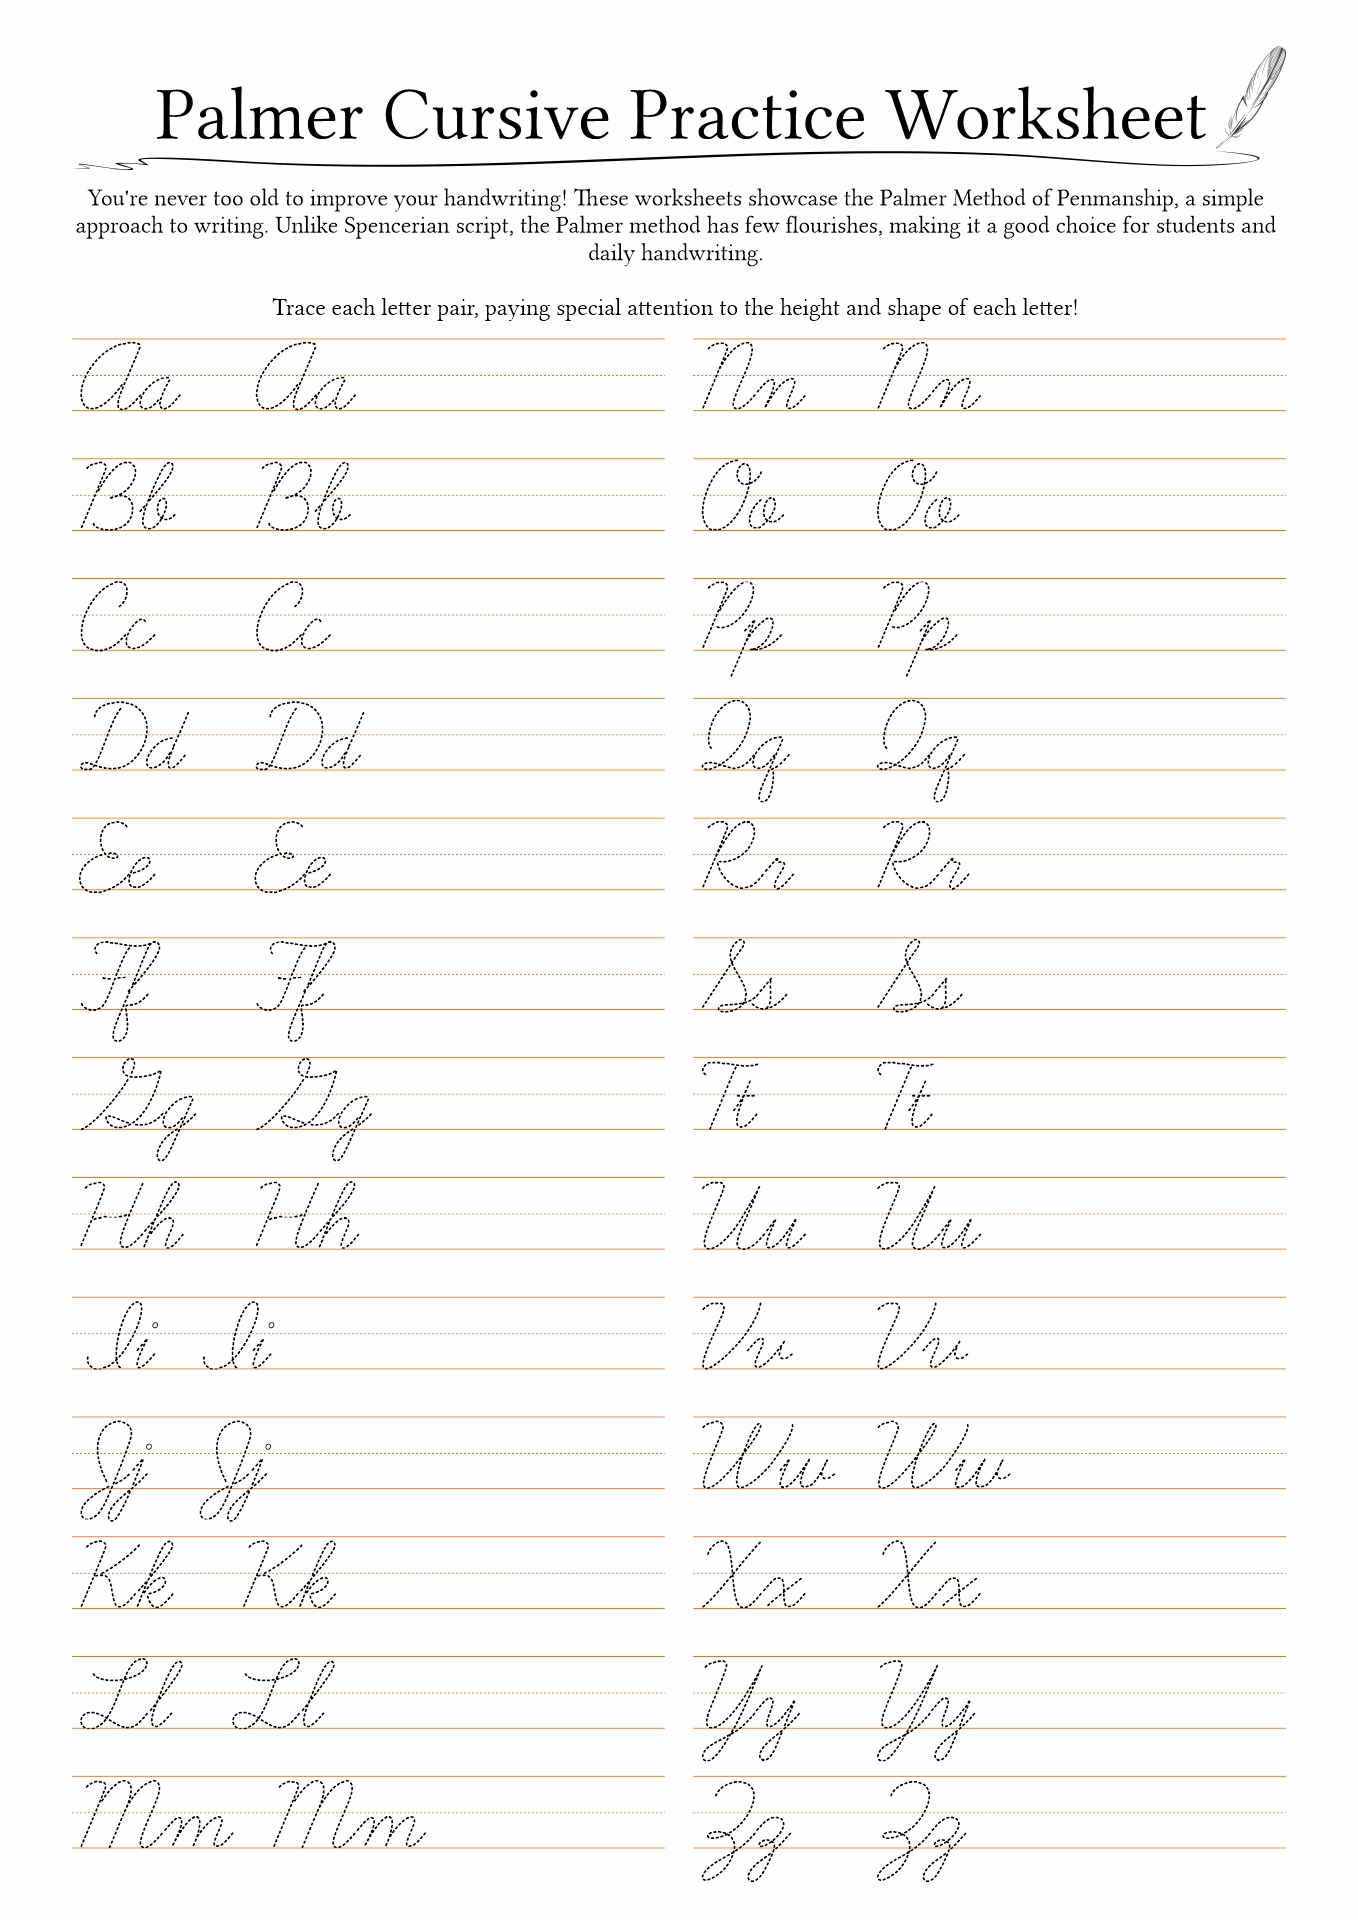 Palmer Cursive Practice Worksheet
You're never too old to improve your handwriting! These worksheets showcase the Palmer Method of Penmanship, a simple
approach to writing. Unlike Spencerian script, the Palmer method has few flourishes, making it a good choice for students and
daily handwriting.
Trace each letter pair, paying special attention to the height and shape of each letter!
Aa Aa
Bb Bb
Cc Cc
Dd Dd
Ee Ee
Ff Ff
Gg Gg
Hh Hh
Ii Ii
Jj Jj
Kk Kk
Ll Ll
Mm Mm
Nn Nn
Oo Oo
Pp Pp
Qq Qq
Rr Rr
Ss Ss
Tt Tt
Uu Uu
Vv Vv
Ww Ww
Xx Xx
Yy Yy
Zz Zz